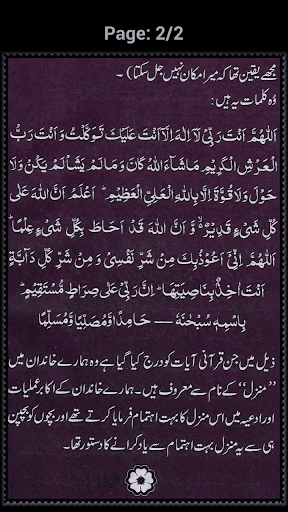 Page: 2/2
مجھے یقین تھا کہ میرا مکان نہیں جل سکتا) ۔
وُہ کلمات یہ ہیں:
اَللّٰهُمَّ اَنْتَ رَبِّيْ لَآ اِلٰهَ اِلَّآ اَنْتَ عَلَيْكَ تَوَكَّلْتُ وَاَنْتَ رَبُّ
الْعَرْشِ الْكَرِيْمِ مَاشَآءَ اللّٰهُ كَانَ وَمَا لَمْ يَشَأْ لَمْ يَكُنْ وَلَا
حَوْلَ وَلَا قُوَّةَ اِلَّا بِاللّٰهِ الْعَلِيِّ الْعَظِيْمِ ۔ اَعْلَمُ اَنَّ اللّٰهَ عَلٰى
كُلِّ شَيْءٍ قَدِيْرٌ وَّ اَنَّ اللّٰهَ قَدْ اَحَاطَ بِكُلِّ شَيْءٍ عِلْمًا ۔
اَللّٰهُمَّ اِنِّيْٓ اَعُوْذُبِكَ مِنْ شَرِّ نَفْسِيْ وَ مِنْ شَرِّ كُلِّ دَآبَّةٍ
اَنْتَ اٰخِذٌۢ بِنَاصِيَتِهَا ۔ اِنَّ رَبِّيْ عَلٰى صِرَاطٍ مُّسْتَقِيْمٍ ۔
بِاسْمِهٖ سُبْحٰنَهٗ — حَامِدًا وَّمُصَلِّيًا وَّمُسَلِّمًا
ذیل میں جن قرآنی آیات کو درج کیا گیا ہے وہ ہمارے خاندان میں
”منزل“ کے نام سے معروف ہیں۔ ہمارے خاندان کے اکابر عملیات
اور ادعیہ میں اس منزل کا بہت اہتمام فرمایا کرتے تھے اور بچوں کو بچپن
ہی سے یہ منزل بہت اہتمام سے یاد کرانے کا دستور تھا۔